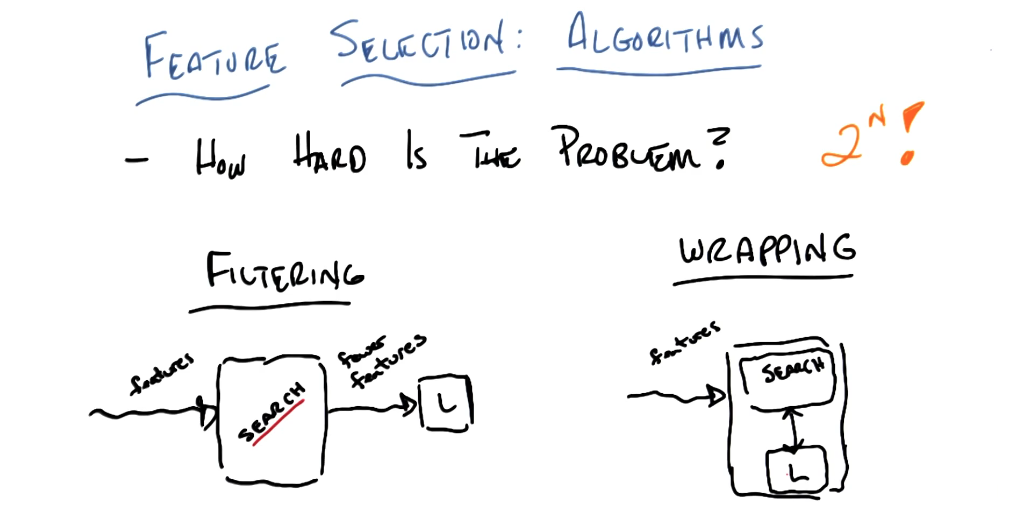 FEATURE SELECTION: ALGORITHMS
- How HARD Is THE PROBLEM? 2^N!
FILTERING
features
SEARCH
fewer
features
L
WRAPPING
features
SEARCH
L